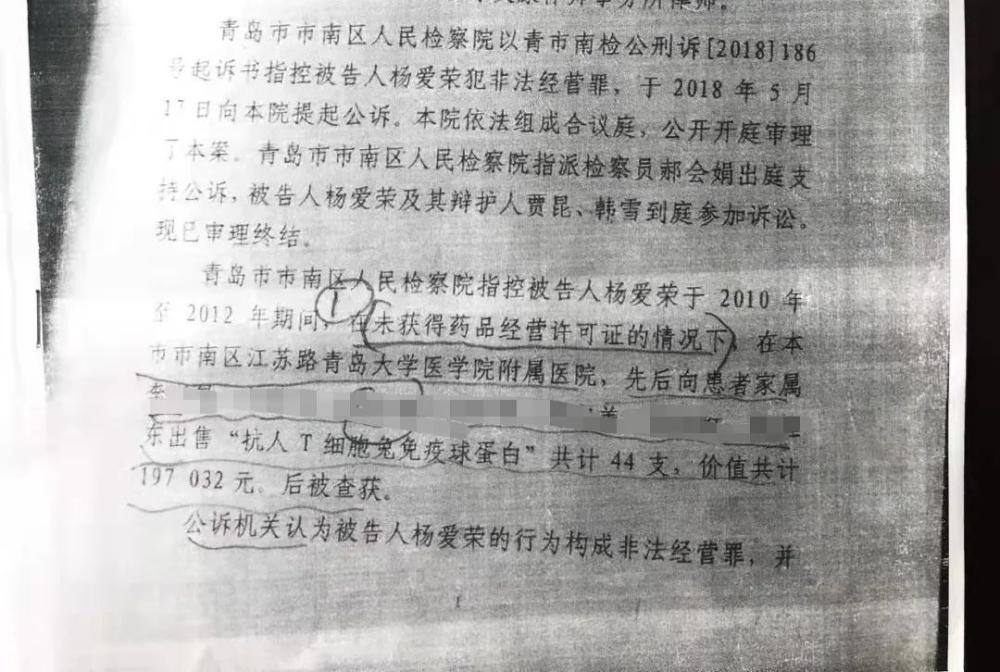 律师。
青岛市市南区人民检察院以青市南检公刑诉[2018]186
号起诉书指控被告人杨爱荣犯非法经营罪，于 2018 年 5 月
17日向本院提起公诉。本院依法组成合议庭，公开开庭审理
了本案。青岛市市南区人民检察院指派检察员郝会娟出庭支
持公诉，被告人杨爱荣及其辩护人贾昆、韩雪到庭参加诉讼。
现已审理终结。
青岛市市南区人民检察院指控被告人杨爱荣于 2010 年
1
至 2012 年期间，在未获得药品经营许可证的情况下，在本
市市南区江苏路青岛大学医学院附属医院，先后向患者家属
东出售“抗人 T 细胞兔免疫球蛋白”共计 44 支，价值共计
197 032 元。后被查获。
公诉机关认为被告人杨爱荣的行为构成非法经营罪，并
1